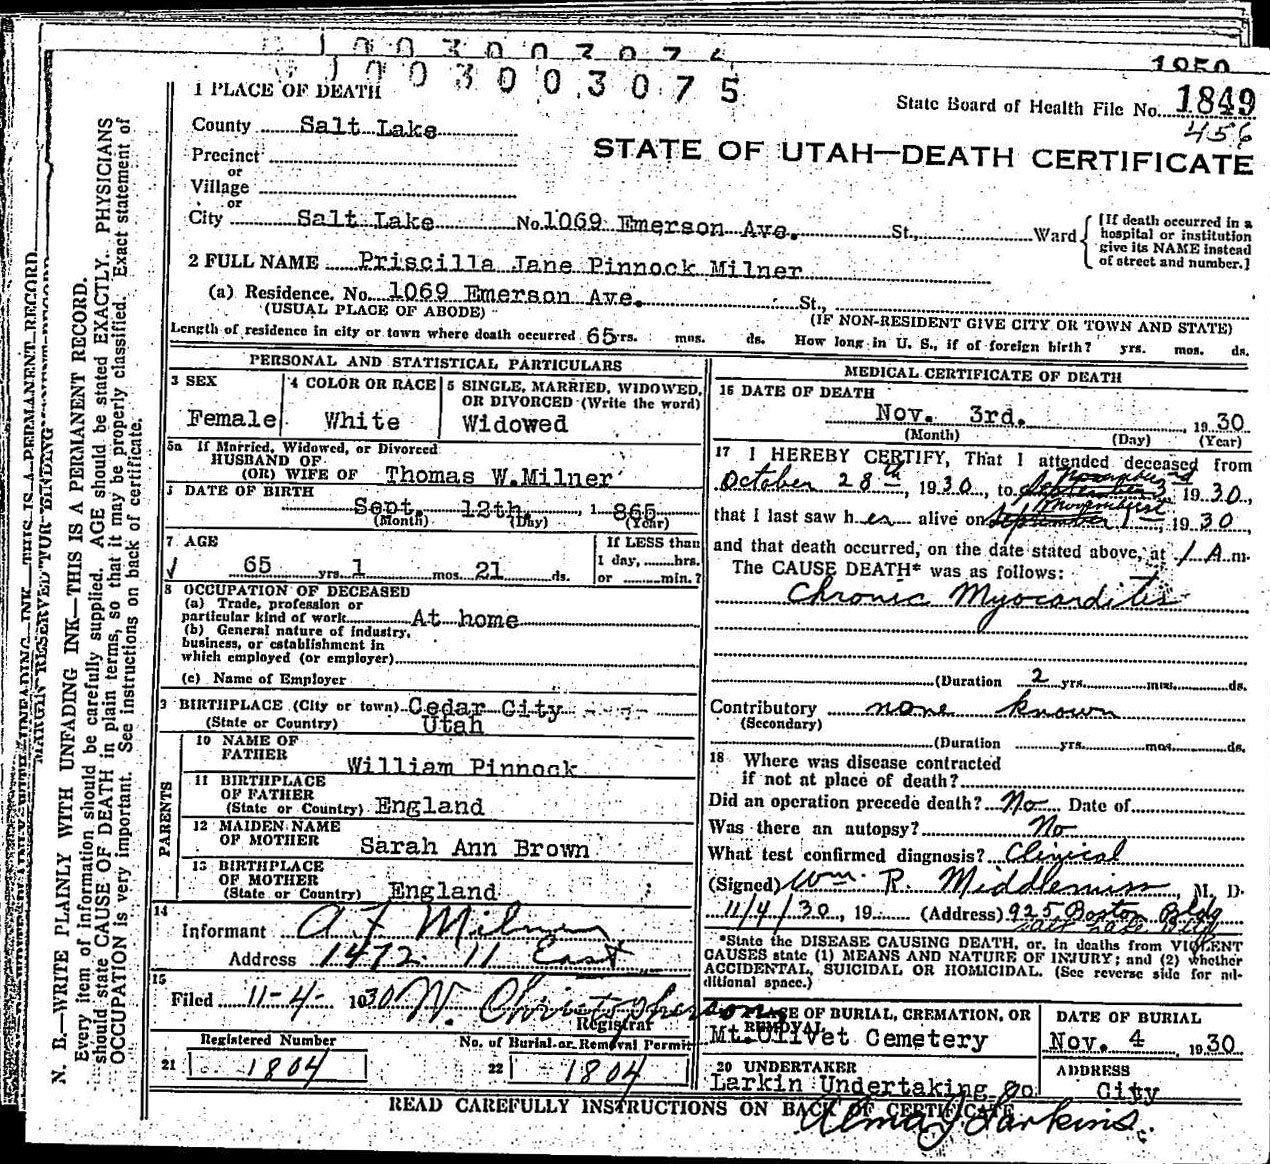 1003003074
1850
1003003075
1 PLACE OF DEATH
State Board of Health File No. 1849
456
County Salt Lake
STATE OF UTAH—DEATH CERTIFICATE
Precinct
or
Village
or
City Salt Lake No. 1069 Emerson Ave. St., Ward
[If death occurred in a
hospital or institution
give its NAME instead
of street and number.]
2 FULL NAME Priscilla Jane Pinnock Milner
(a) Residence. No. 1069 Emerson Ave. St.,
(USUAL PLACE OF ABODE) (IF NON-RESIDENT GIVE CITY OR TOWN AND STATE)
Length of residence in city or town where death occurred 65 yrs. mos. ds. How long in U. S., if of foreign birth? yrs. mos. ds.
PERSONAL AND STATISTICAL PARTICULARS
3 SEX
Female
4 COLOR OR RACE
White
5 SINGLE, MARRIED, WIDOWED,
OR DIVORCED (Write the word)
Widowed
5a If Married, Widowed, or Divorced
HUSBAND OF
(OR) WIFE OF Thomas W. Milner
DATE OF BIRTH
Sept. 12th, 1865
(Month) (Day) (Year)
7 AGE
65 yrs. 1 mos. 21 ds.
If LESS than
1 day, hrs.
or min.?
8 OCCUPATION OF DECEASED
(a) Trade, profession or
particular kind of work At home
(b) General nature of industry,
business, or establishment in
which employed (or employer)
(c) Name of Employer
BIRTHPLACE (City or town) Cedar City
(State or Country) Utah
PARENTS
10 NAME OF
FATHER William Pinnock
11 BIRTHPLACE
OF FATHER
(State or Country) England
12 MAIDEN NAME
OF MOTHER Sarah Ann Brown
13 BIRTHPLACE
OF MOTHER
(State or Country) England
14
Informant A F Milner
Address 1472 11 East
15
Filed 11-4- 1930 W. Christopherson
Registrar
Registered Number
21 1804
No. of Burial or Removal Permit
22 1804
MEDICAL CERTIFICATE OF DEATH
16 DATE OF DEATH
Nov. 3rd. , 1930
(Month) (Day) (Year)
17 I HEREBY CERTIFY, That I attended deceased from
October 28th, 1930, to September November 3rd, 1930,
that I last saw her alive on September November 1st, 1930,
and that death occurred, on the date stated above, at 1 A m.
The CAUSE DEATH* was as follows:
Chronic Myocarditis
(Duration 2 yrs. mos. ds.
Contributory none known
(Secondary)
(Duration yrs. mos. ds.
18 Where was disease contracted
if not at place of death?
Did an operation precede death? No Date of
Was there an autopsy? No
What test confirmed diagnosis? Clinical
(Signed) Wm. R. Middlemiss, M. D.
11/4/30, 19 (Address) 925 Boston Bldg
Salt Lake
*State the DISEASE CAUSING DEATH, or, in deaths from VIOLENT
CAUSES state (1) MEANS AND NATURE OF INJURY; and (2) whether
ACCIDENTAL, SUICIDAL OR HOMICIDAL. (See reverse side for ad-
ditional space.)
PLACE OF BURIAL, CREMATION, OR
REMOVAL
Mt. Olivet Cemetery
DATE OF BURIAL
Nov. 4 , 1930
20 UNDERTAKER
Larkin Undertaking Co
ADDRESS
City
READ CAREFULLY INSTRUCTIONS ON BACK OF CERTIFICATE
Alma J Larkins.
MARGIN RESERVED FOR BINDING
N. B.—WRITE PLAINLY WITH UNFADING INK—THIS IS A PERMANENT RECORD.
Every item of information should be carefully supplied. AGE should be stated EXACTLY. PHYSICIANS
should state CAUSE OF DEATH in plain terms, so that it may be properly classified. Exact statement of
OCCUPATION is very important. See instructions on back of certificate.